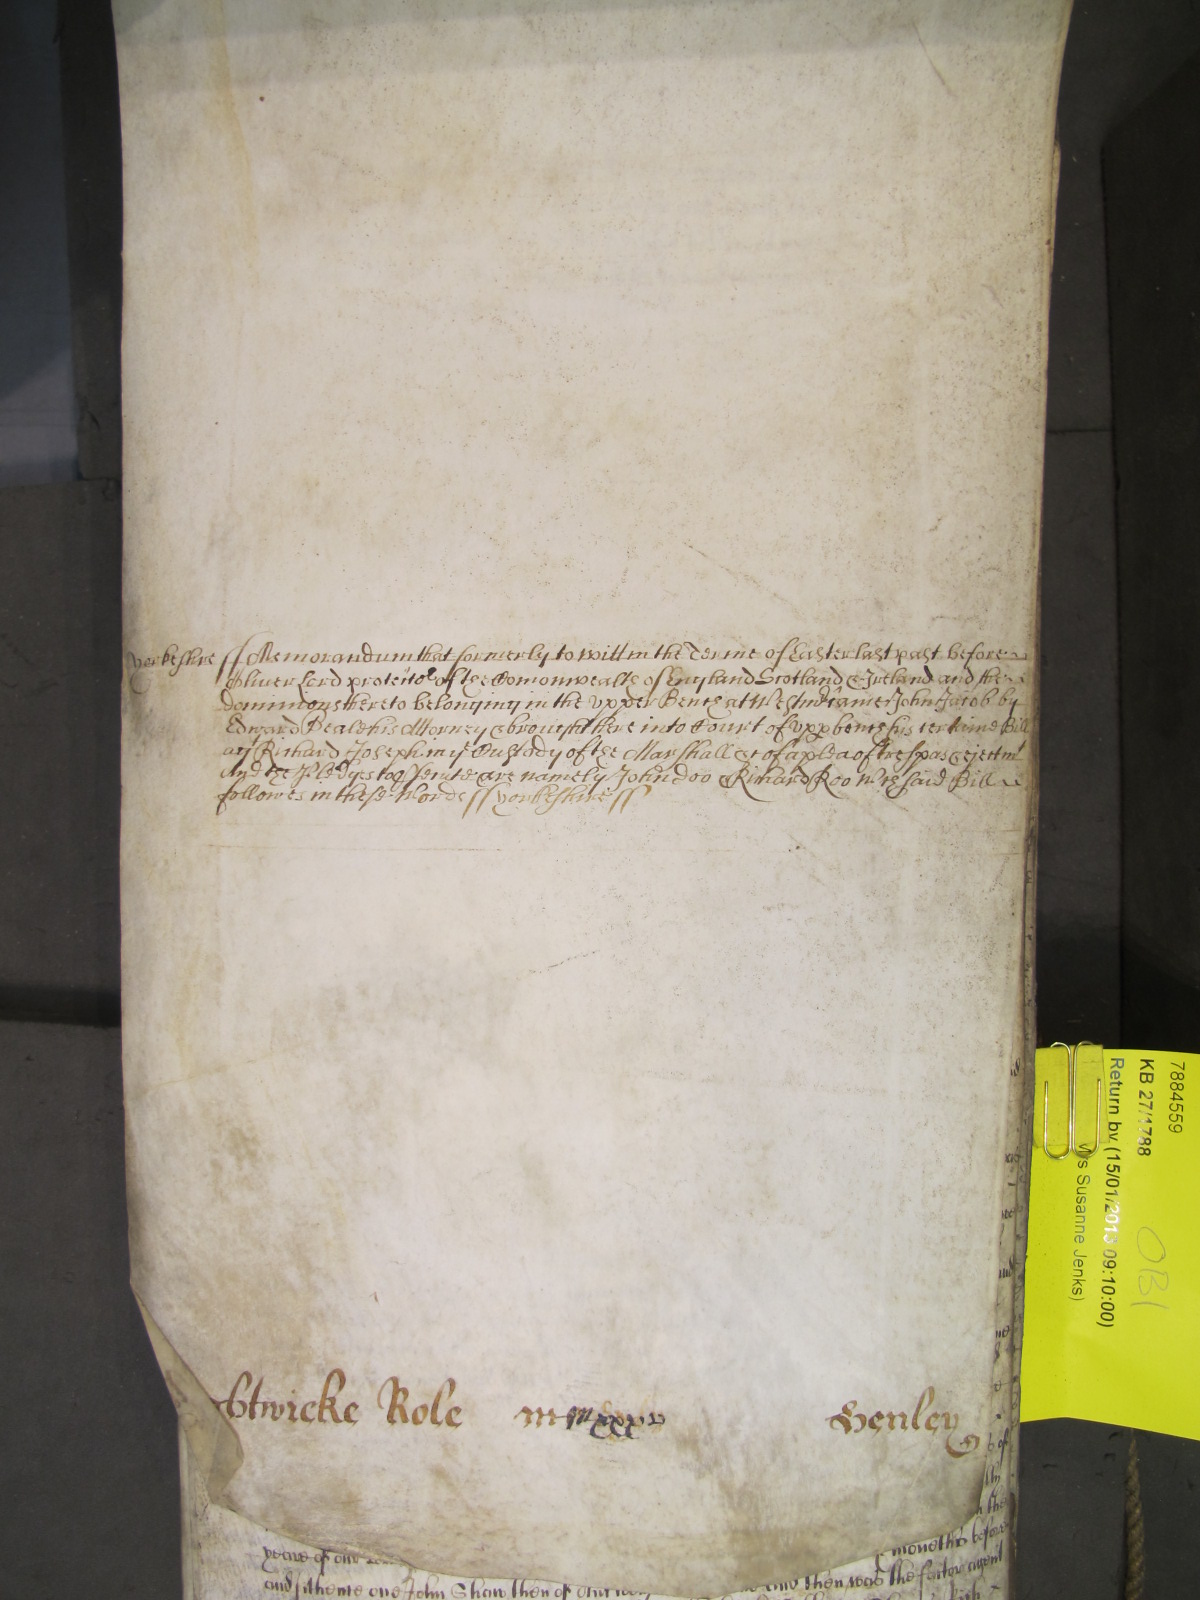 yorkeshire ss Memorandum that formerly to will in the Terme of Easter last past before
Oliver Lord protector of the Comonwealth of England Scotland & Ireland and the
dominions thereto belonging in the vpper Bench at Westm came John Jacob by
Edward Deale his Attorney & brought here into Court of vpp bench his certaine Bill
agt Richard Joseph in ye Custody of the Marshall &c of a plea of trespas & ejectmt
And the Pledges to pserute are namely John Doo & Richard Roo wch said Bill
followes in these Wordes ss yorkeshire ss
htwicke Role
Henley
yeare of our
monethes before
and if theme one John Shaw then of
and then was the factor agent
7884559
KB 27/1788
Return by (15/01/2013 09:10:00)
s Susanne Jenks)
OBI